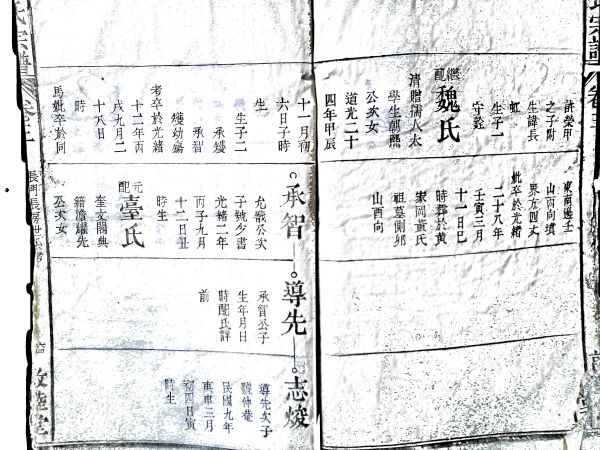 氏宗譜
卷三
許榮甲
之子尉
生諱長
虹
生子二
守銓
繼配
魏氏
清贈孺人太
學生朝熙
公次女
道光二十
四年甲辰
十一月初
六日子時
生
生子二
承綫
承智
殘幼殤
考卒於光緒
十二年丙
戌九月二
十八日
時
馬妣卒於同
東南邊壬
山丙向墳
界方四丈
妣卒於光緒
二十八年
壬寅三月
十一日巳
時葬於黄
家岡黃氏
祖墓側卯
山酉向
承智
允戬公次
子號少書
光緒二年
丙子九月
十二日丑
時生
元配
臺氏
奎文閣典
籍澹耀先
公次女
導先
承智公子
生年月日
時配氏詳
前
志焌
導先次子
號仲菴
民國九年
庚申三月
初四日寅
時生
氏宗譜
卷三
敦睦堂